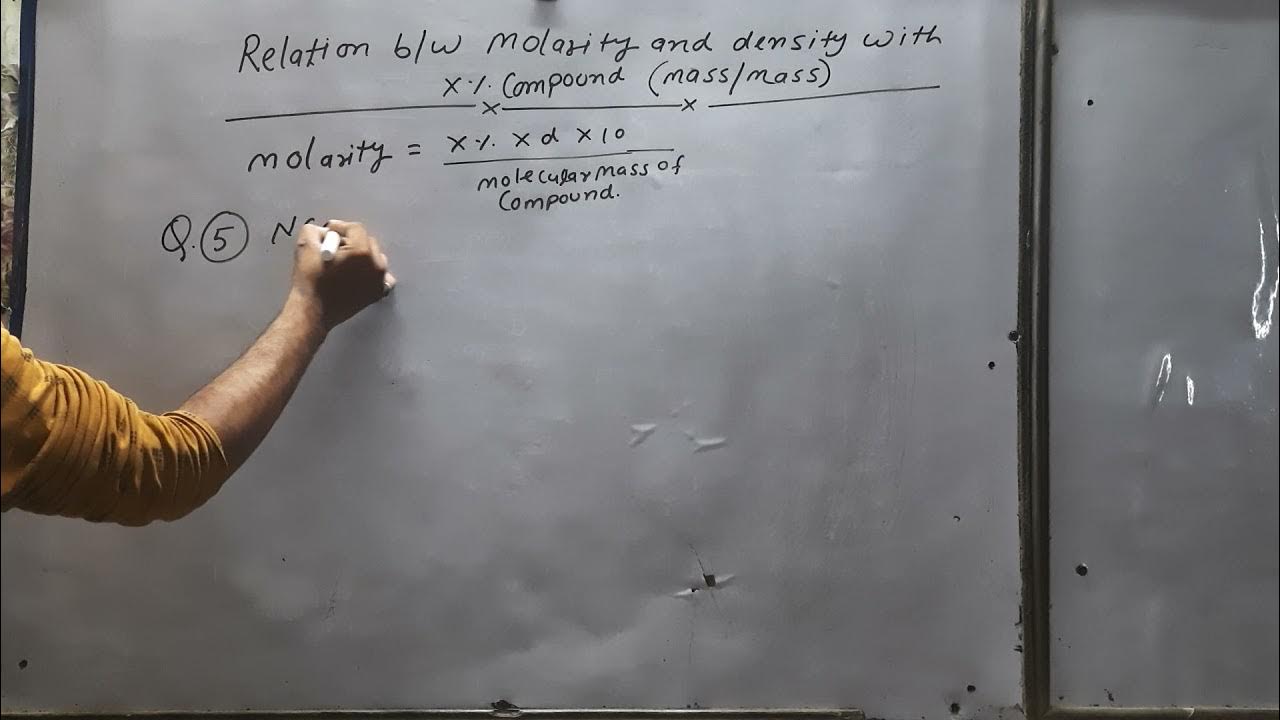 Relation b/w Molarity and density with
x % Compound (mass/mass)
molarity = x % x d x 10
molecular mass of
Compound.
Q. 5